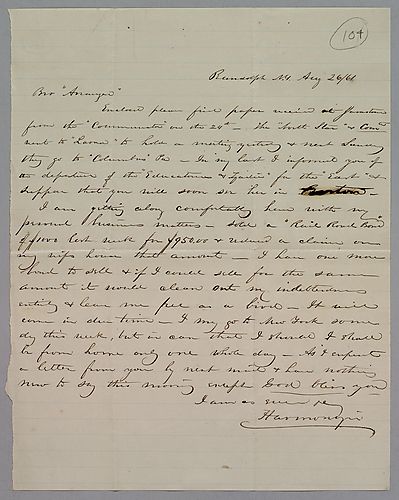 104
Randolph N.Y. Aug 26/61
Bro "Arranger"
Enclosed please find paper received at Jamestown
from the "Communicator" on the 24th – The "North Star" & Com
went to "Leone" to hold a meeting yesterday & next Sunday
they go to "Columbus" Pa – In my last I informed you of
the departure of the "Educator" & for the "East" &
suppose that you will soon see her in
I am getting along comfortably here with my
personal business matters – sold a "Rail Road Bond"
of $1000 last week for $950.00 & reduced a claim on
my wifes house that amount – I have one more
bond to sell & if I could sell for the same
amount it would clean out my indebtedness
entirely & leave me free as a bird – It will
come in due time – I may go to New York some
day this week, but in case that I should I shall
be from home only one whole day – As I expect
a letter from you by next mail & have nothing
new to say this morning except God bless you
I am as ever
Harmonizer